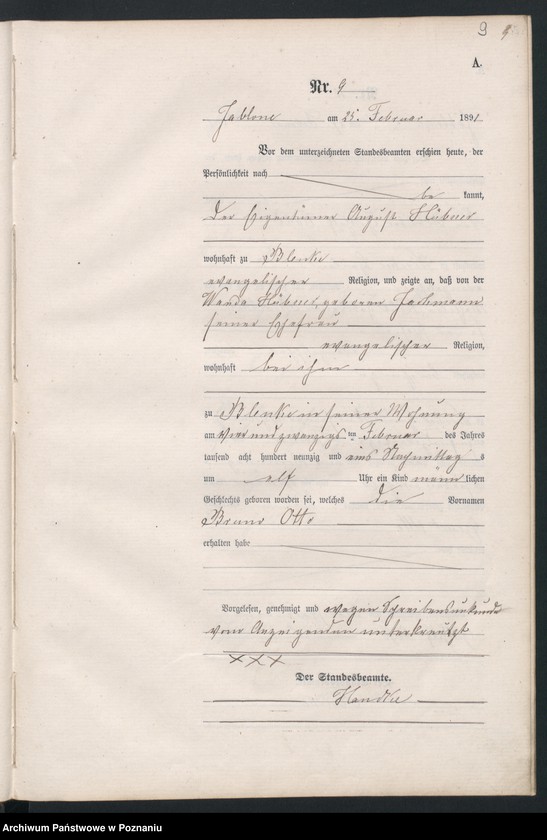 9 9
A.
Nr. 9
Jablone am 25. Februar 1891
Vor dem unterzeichneten Standesbeamten erschien heute, der
Persönlichkeit nach
be kannt,
der Eigenthümer August Hübner
wohnhaft zu Blenke
evangelischer Religion, und zeigte an, daß von der
Wanda Hübner, geboren Jachmann
seiner Ehefrau
evangelischer Religion,
wohnhaft bei ihm
zu Blenke in seiner Wohnung
am vier und zwanzigs ten Februar des Jahres
tausend acht hundert neunzig und eins Nachmittag s
um elf Uhr ein Kind männ lichen
Geschlechts geboren worden sei, welches die Vornamen
Bruno Otto
erhalten habe
Vorgelesen, genehmigt und wegen Schreibensunkunde
vom Anzeigenden unterkreuzt
XXX
Der Standesbeamte.
Handke
Archiwum Państwowe w Poznaniu